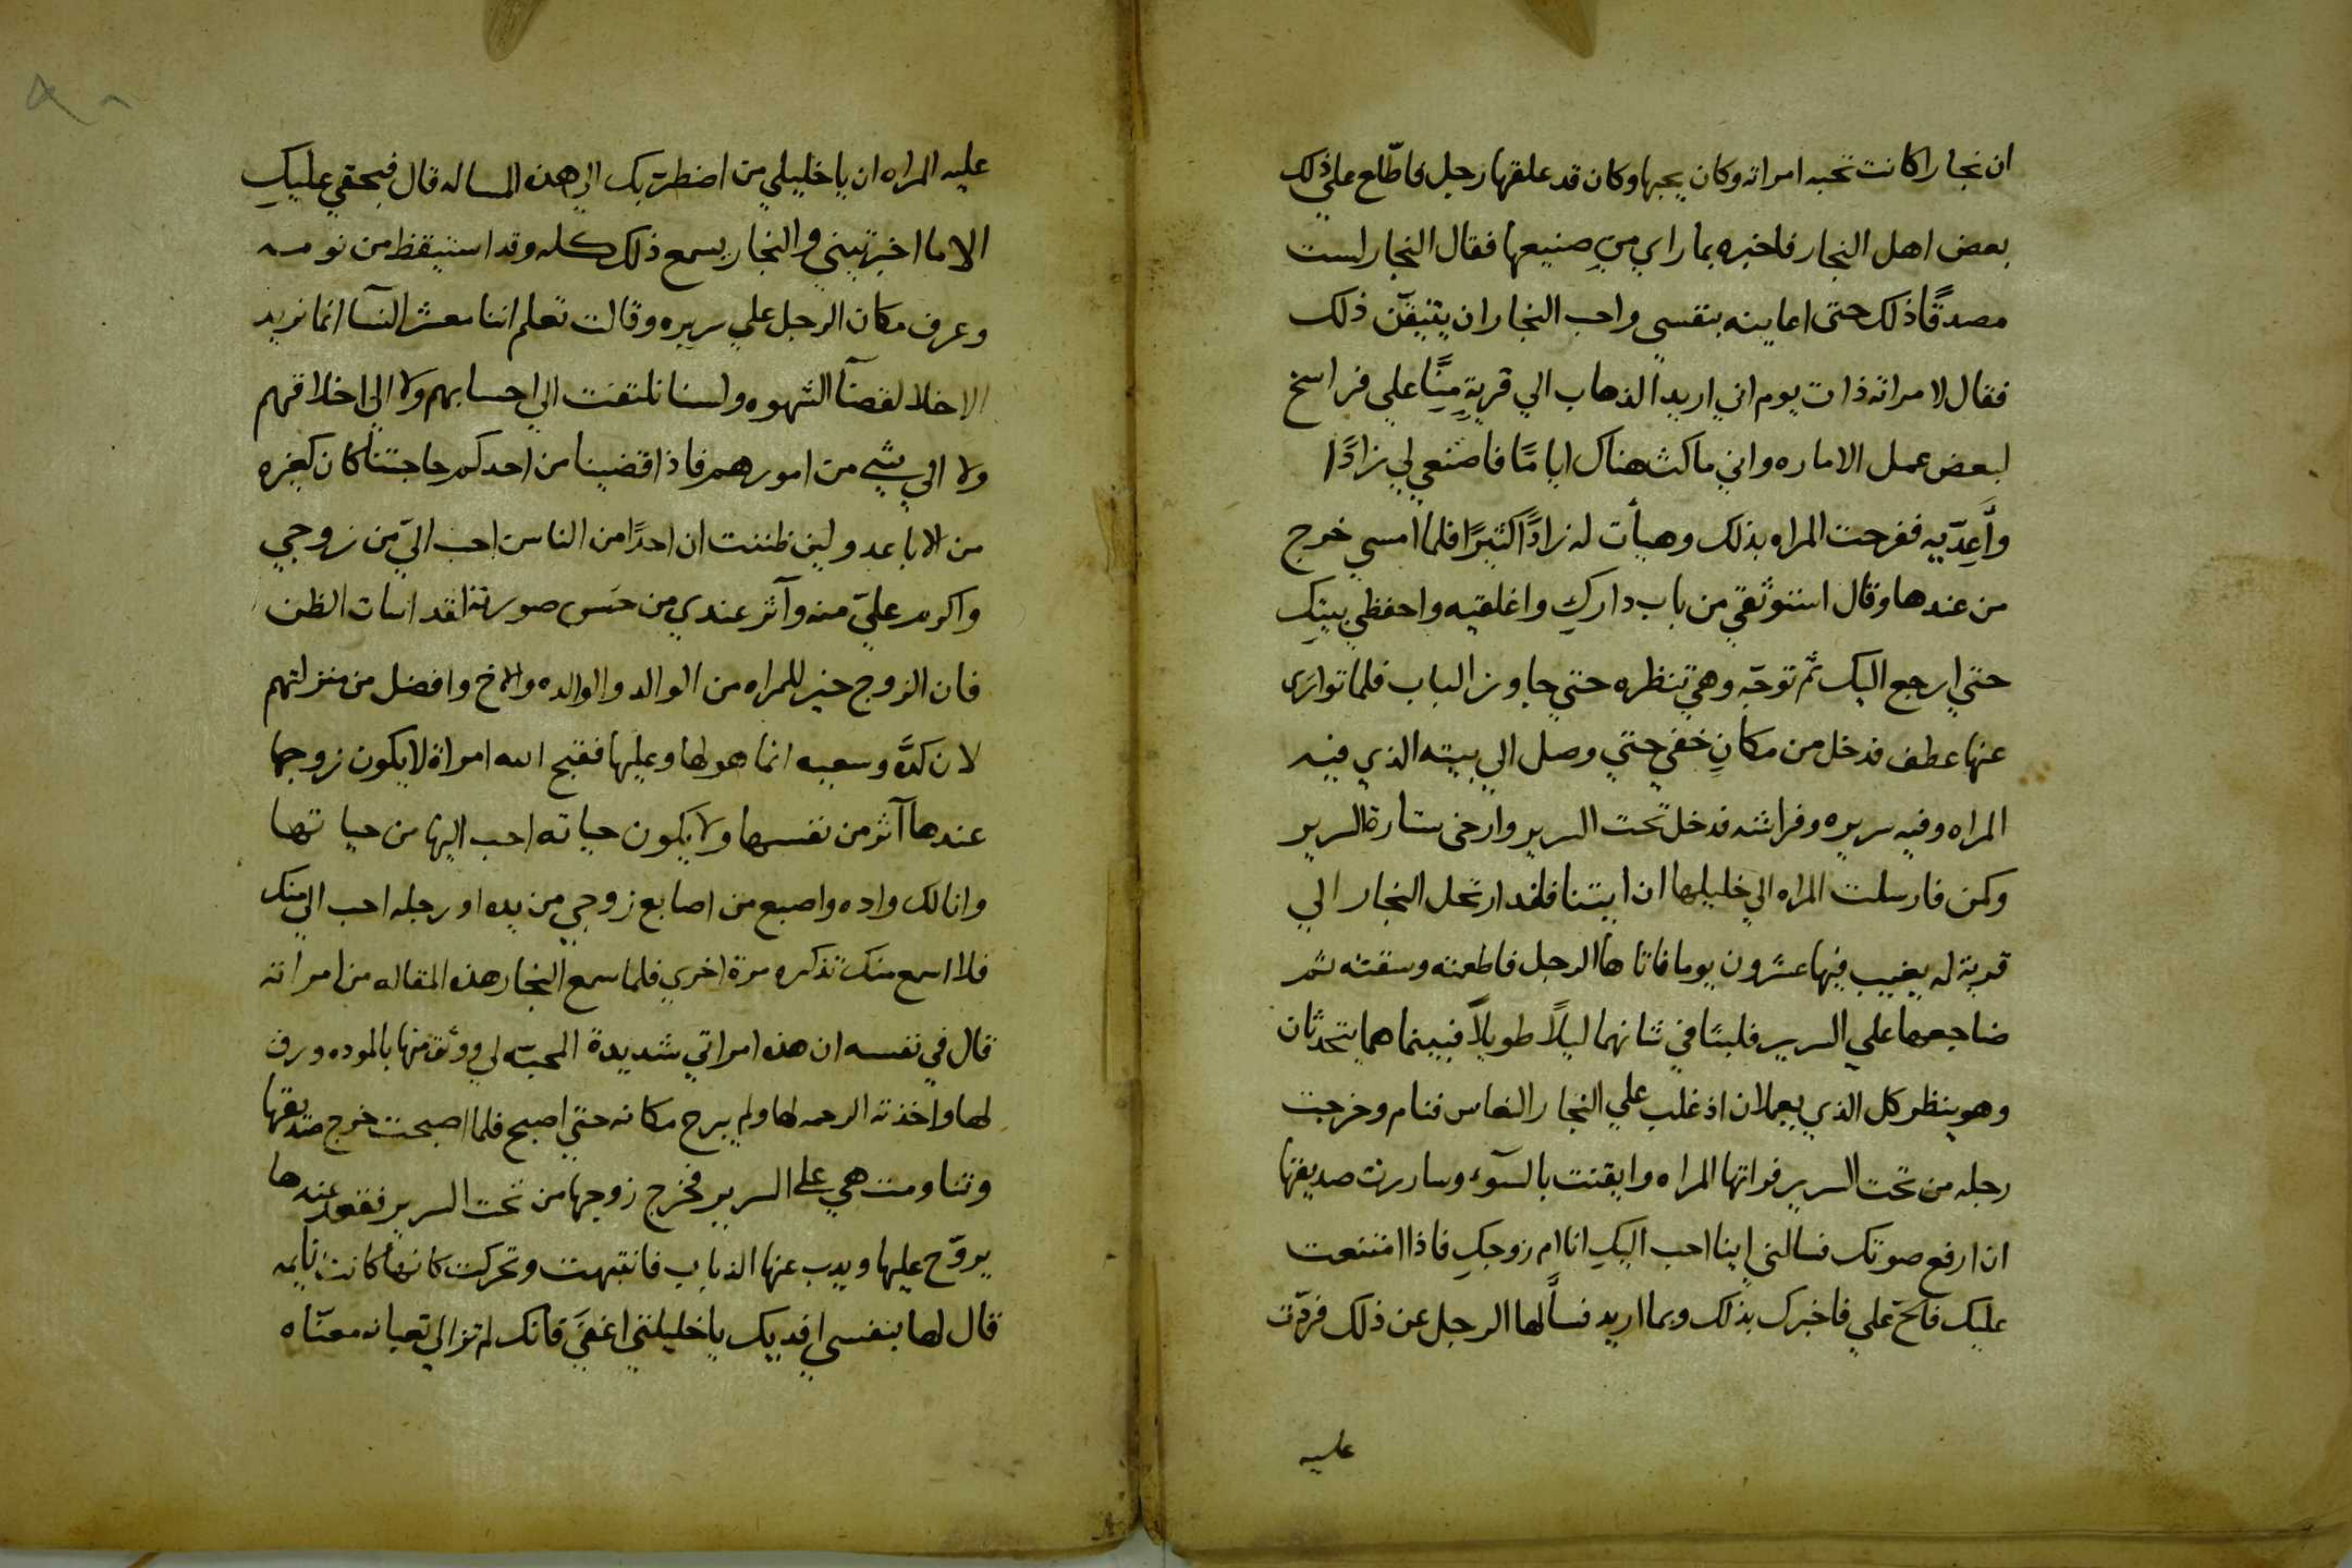 ان نجارا كانت تحبه امراته وكان يحبها وكان قد علقها رجل فاطّلع علي ذلك
بعض اهل النجار فاخبره بما راي من صنيعها فقال النجار لست
مصدقًا ذلك حتى اعاينه بنفسي واحب النجار ان يتيقّن ذلك
فقال لامراته ذات يوم اني اريد الذهاب الي قريةٍ مِنَّا علي فراسخ
لبعض عمل الاماره واني ماكث هناك ايامًا فاصنعي لي زادًا
وأَعِدّيه ففرحت المراه بذلك وهيأت له زادًا كثيرًا فلما امسي خرج
من عندها وقال استوثقي من باب داركِ واغلقيه واحفظي بيتكِ
حتي ارجع اليك ثم توجّه وهي تنظره حتي جاوز الباب فلما توارى
عنها عطف فدخل من مكانٍ خفي حتي وصل الي بيته الذي فيه
المراه وفيه سريره وفراشه فدخل تحت السرير وارخى ستارة السرير
وكمن فارسلت المراه الي خليلها ان ايتنا فلقد ارتحل النجار الي
قرية له يغيب فيها عشرون يوما فاتاها الرجل فاطعمته وسقته ثم
ضاجعها علي السرير فلبثا في شانهما ليلًا طويلًا فبينما هما يتحدثان
وهو ينظر كل الذي يعملان اذ غلب علي النجار النعاس فنام وخرجت
رجله من تحت السرير فراتها المراه وايقنت بالسوٓء وساررت صديقها
ان ارفع صوتك فسالني اينا احب اليكِ انا ام زوجكِ فاذا امتنعت
عليك فالح علي فاخبرك بذلك وبما اريد فسألها الرجل عن ذلك فردّت
عليه
عليه المراه ان يا خليلي من اضطرّ بك الي هذه المساله قال فبحقي عليكِ
الا ما اخبرتيني والنجار يسمع ذلك كله وقد استيقظ من نومه
وعرف مكان الرجل علي سريره وقالت تعلم اننا معشر النسآ انما نريد
الاخلا لقضآ الشهوه ولسنا نلتفت الي احسابهم ولا الي اخلاقهم
ولا الي شي من امورهم فاذا قضينا من احدكم حاجتنا كان كغيره
من الاباعد ولين ظننت ان احدًا من الناس احب اليّ من زوجي
واكرم عليّ منه وآثر عندي من حسن صورته لقد اسات الظن
فان الزوج خير للمراه من الوالد والوالده والاخ وافضل من منزلتهم
لان كدَّه وسعيه انما هو لها وعليها فقبح الله امراة لا يكون زوجها
عندها آثر من نفسها ولا يكون حياته احب اليها من حياتها
وانا لك واده واصبع من اصابع زوجي من يده او رجله احب الي منك
فلا اسمع منك تذكره مرة اخري فلما سمع النجار هذه المقاله من امراته
قال في نفسه ان هذه امراتي شديدة المحبّه لي ووثق منها بالموده ورق
لها واخذته الرحمه لها ولم يبرح مكانه حتي اصبح فلما اصبحت خرج صديقها
وتناومت هي على السرير فخرج زوجها من تحت السرير فقعد عندها
يروّح عليها ويدب عنها الذباب فانتبهت وتحركت كانها كانت نايمه
قال لها بنفسي افديك يا خليلتي اغفي فانك لم تزالي تعبانه معنّاه